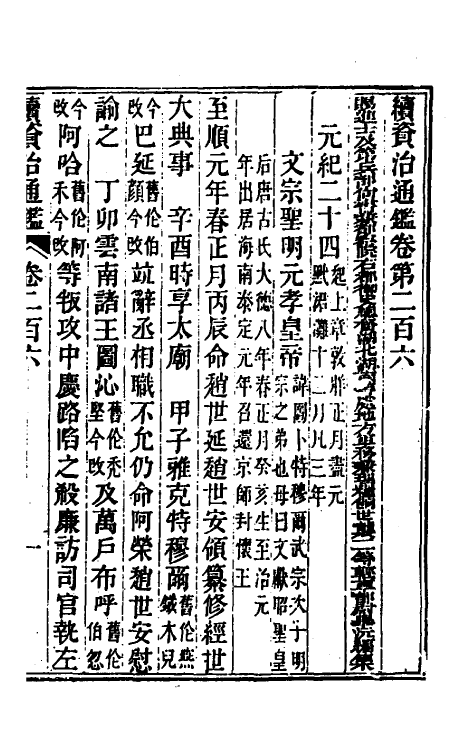 續資治通鑑卷第二百六
元紀二十四起上章敦牂正月盡元黓涒灘十二月凡三年
文宗聖明元孝皇帝諱圖卜特穆爾武宗次子明宗之弟也母曰文獻昭聖皇
后唐古氏大德八年春正月癸亥生至治元
年出居海南泰定元年召還京師封懷王
至順元年春正月丙辰命趙世延趙世安領纂修經世
大典事 辛酉時享太廟 甲子雅克特穆爾舊作燕鐵木兒
今改巴延舊作伯顏今改竝辭丞相職不允仍命阿榮趙世安慰
諭之 丁卯雲南諸王圖沁舊作禿堅今改及萬戶布呼舊作伯忽
今改阿哈舊作阿禾今改等叛攻中慶路陷之殺廉訪司官執左
續資治通鑑 卷二百六 一